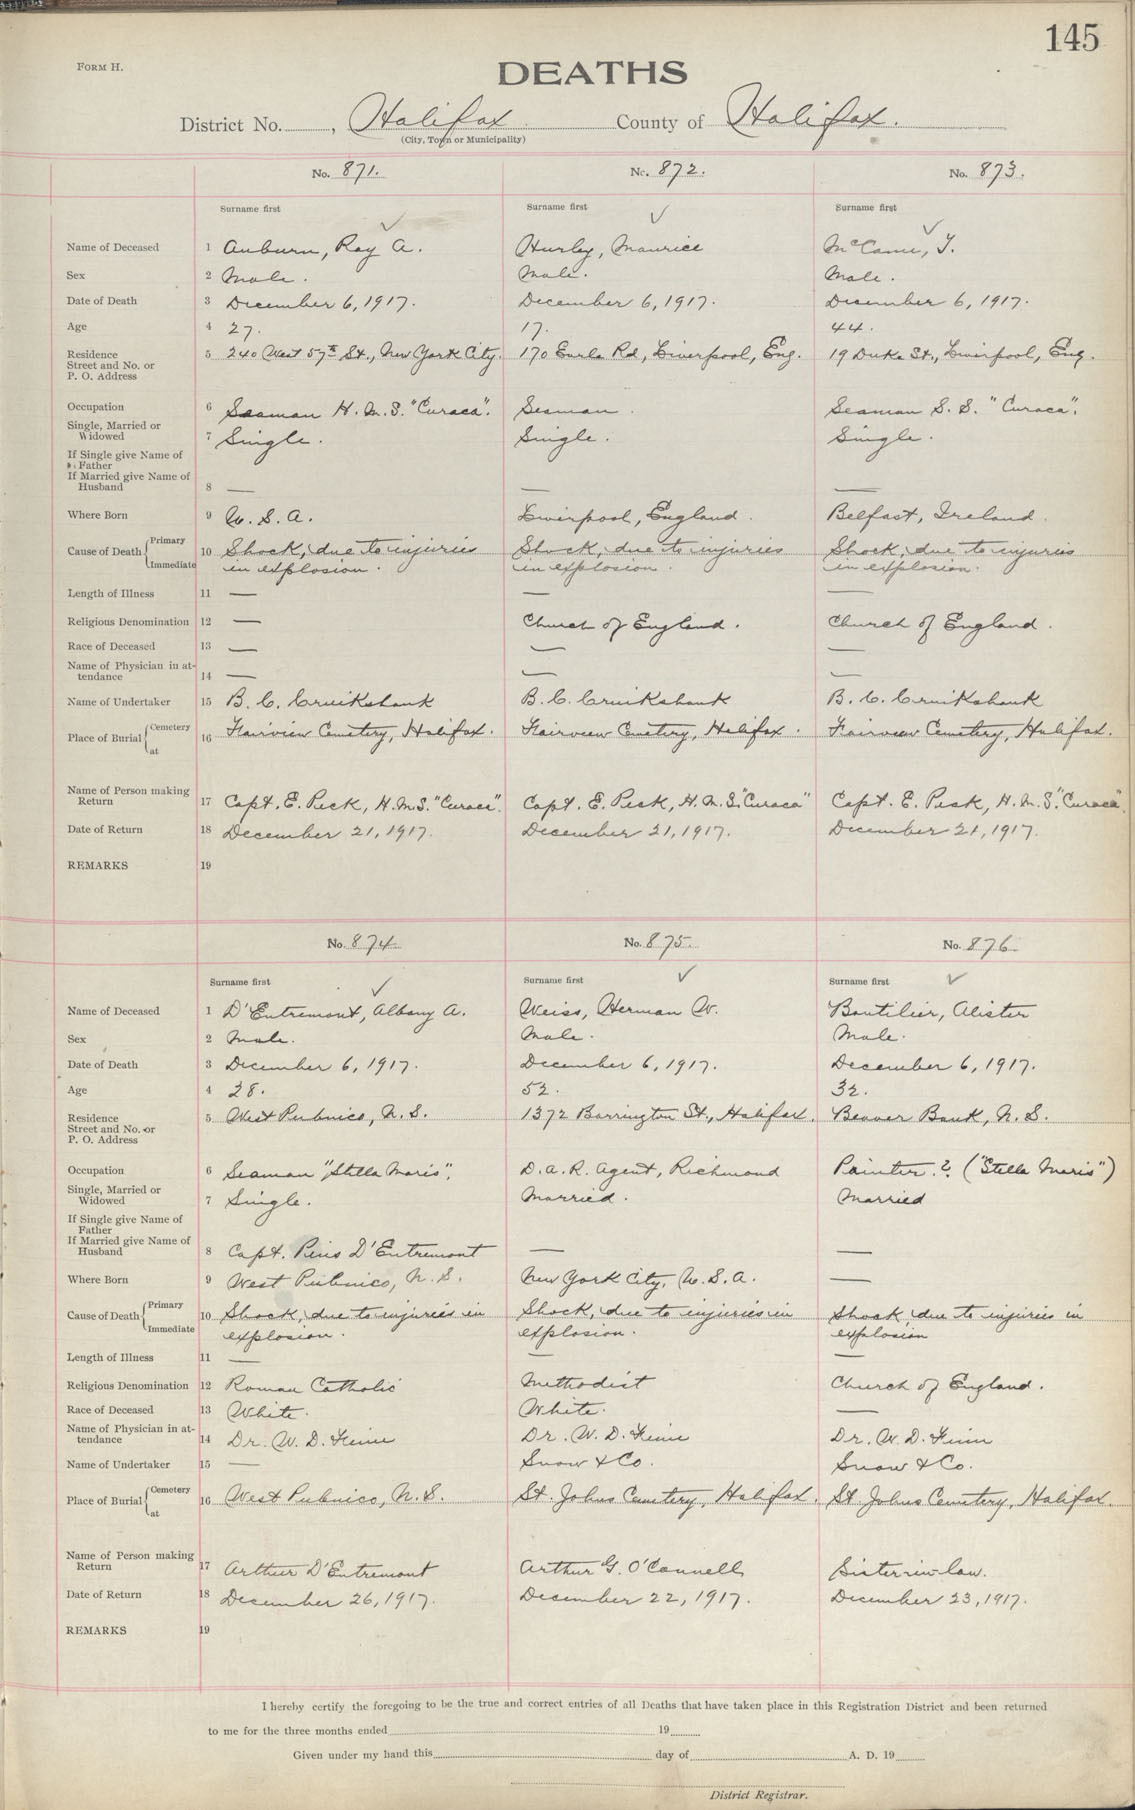 145
FORM H.
DEATHS
District No. , Halifax County of Halifax.
(City, Town or Municipality)
No. 871. No. 872. No. 873.
Surname first Surname first Surname first
Name of Deceased 1 Auburn, Roy A. Hurley, Maurice
Sex 2 Male. Male. Male.
Date of Death 3 December 6, 1917. December 6, 1917. December 6, 1917.
Age 4 27. 17. 44.
Residence 5 240 West 57th St., New York City. 170 Earle Rd, Liverpool, Eng. 19 Duke St., Liverpool, Eng.
Street and No. or
P. O. Address
Occupation 6 Seaman H. M. S. "Curaca". Seaman. Seaman S. S. "Curaca".
Single, Married or
Widowed 7 Single. Single. Single.
If Single give Name of
Father
If Married give Name of
Husband 8 — — —
Where Born 9 U. S. A. Liverpool, England. Belfast, Ireland.
Cause of Death Primary 10 Shock, due to injuries Shock, due to injuries Shock, due to injuries
Immediate in explosion. in explosion. in explosion.
Length of Illness 11 — — —
Religious Denomination 12 — Church of England. Church of England.
Race of Deceased 13 — — —
Name of Physician in at-
tendance 14 — — —
Name of Undertaker 15 B. C. Cruikshank B. C. Cruikshank B. C. Cruikshank
Place of Burial Cemetery at 16 Fairview Cemetery, Halifax. Fairview Cemetery, Halifax. Fairview Cemetery, Halifax.
Name of Person making
Return 17 Capt. E. Peck, H. M. S. "Curaca". Capt. E. Peck, H. M. S. "Curaca" Capt. E. Peck, H. M. S. "Curaca".
Date of Return 18 December 21, 1917. December 21, 1917. December 21, 1917.
REMARKS 19
No. 874. No. 875. No. 876.
Surname first Surname first Surname first
Name of Deceased 1 D'Entremont, Albany A. Weiss, Herman W. Boutilier, Alister
Sex 2 Male. Male. Male.
Date of Death 3 December 6, 1917. December 6, 1917. December 6, 1917.
Age 4 28. 52. 32.
Residence 5 West Pubnico, N. S. 1372 Barrington St., Halifax. Beaver Bank, N. S.
Street and No. or
P. O. Address
Occupation 6 Seaman "Stella Maris". D. A. R. Agent, Richmond Painter.? ("Stella Maris")
Single, Married or
Widowed 7 Single. Married. Married
If Single give Name of
Father
If Married give Name of
Husband 8 Capt. Pius D'Entremont — —
Where Born 9 West Pubnico, N. S. New York City, U. S. A. —
Cause of Death Primary 10 Shock, due to injuries in Shock, due to injuries in Shock, due to injuries in
Immediate explosion. explosion. explosion
Length of Illness 11 — — —
Religious Denomination 12 Roman Catholic Methodist Church of England.
Race of Deceased 13 White. White. —
Name of Physician in at-
tendance 14 Dr. W. D. Finn Dr. W. D. Finn Dr. W. D. Finn
Name of Undertaker 15 — Snow & Co. Snow & Co.
Place of Burial Cemetery at 16 West Pubnico, N. S. St. Johns Cemetery, Halifax. St. Johns Cemetery, Halifax.
Name of Person making
Return 17 Arthur D'Entremont Arthur G. O'Connell Sister-in-law.
Date of Return 18 December 26, 1917. December 22, 1917. December 23, 1917.
REMARKS 19
I hereby certify the foregoing to be the true and correct entries of all Deaths that have taken place in this Registration District and been returned
to me for the three months ended 19
Given under my hand this day of A. D. 19
District Registrar.